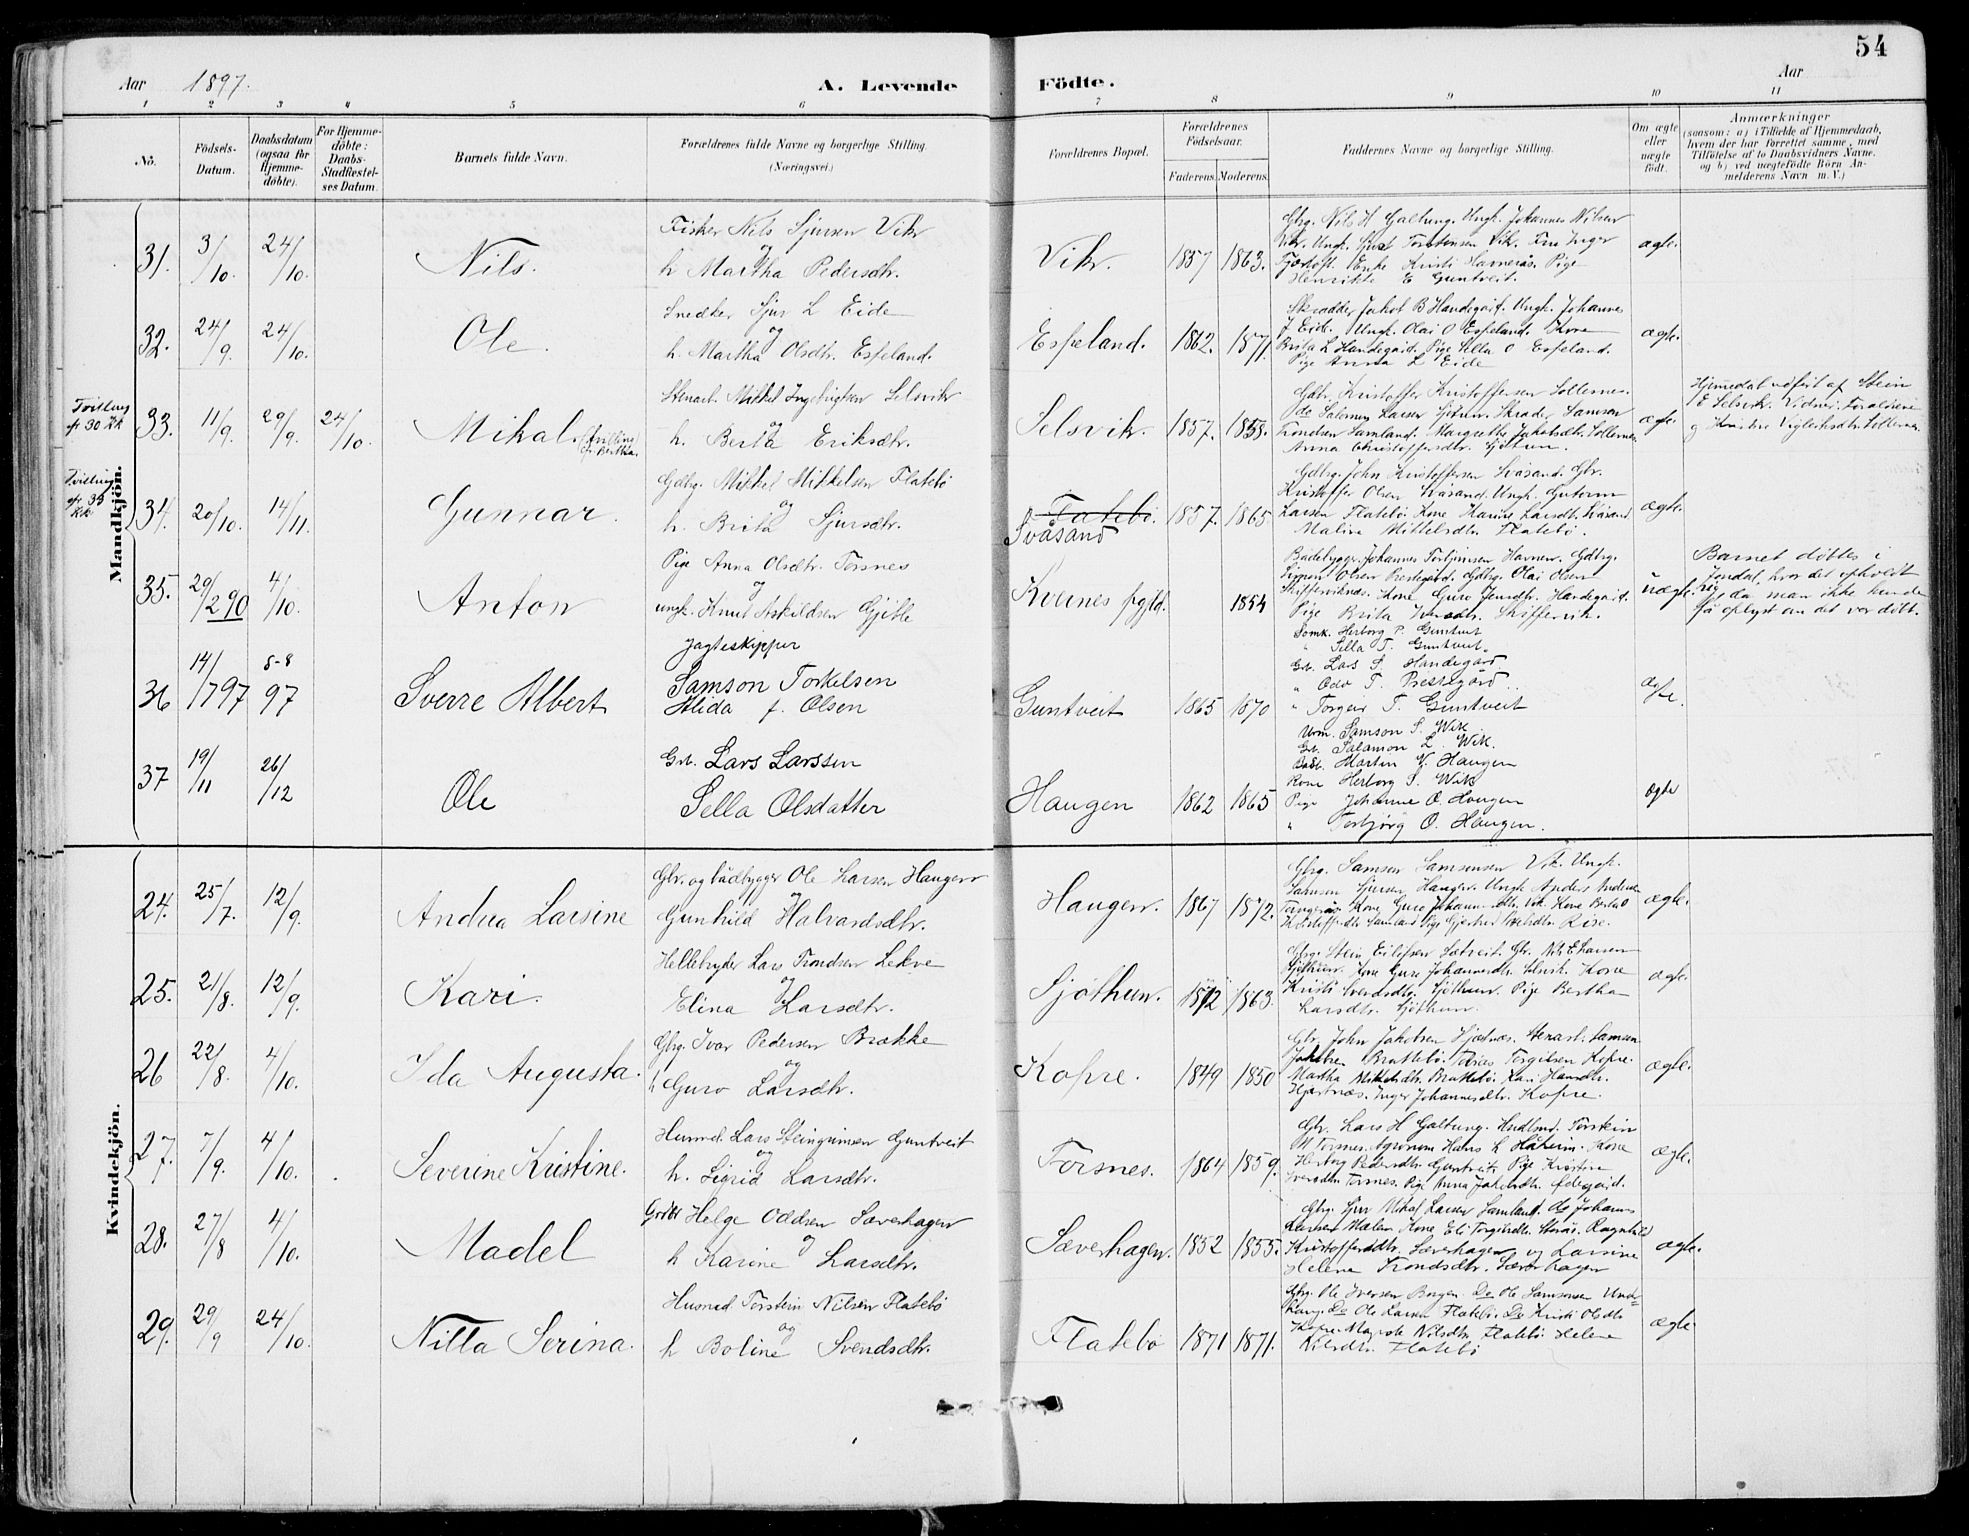 54
Aar 1897.
A. Levende Födte.
Aar
1 2 3 4 5 6 7 8 9 10 11
No.
Födsels-
Datum.
Daabsdatum
(ogsaa for
Hjemme-
döbte).
For Hjemme-
döbte:
Daabs-
Stadfæstel-
ses Datum.
Barnets fulde Navn.
Forældrenes fulde Navne og borgerlige Stilling.
(Næringsvei.)
Forældrenes Bopæl.
Forældrenes
Födselsaar.
Faderens. Moderens.
Faddernes Navne og borgerlige Stilling.
Om ægte
eller
uægte
födt.
Anmærkninger
(saasom: a) i Tilfælde af Hjemmedaab,
hvem der har forrettet samme, med
Tilföielse af to Daabsvidners Navne.
og b) ved uægtefödte Börn An-
melderens Navn m. V.)
Mandkjön.
31. 3/10. 24/10. Nils.
Fisker Nils Sjursen Vik
og
h Martha Pedersdtr.
Vik. 1857 1863.
Gbrg. Nils H Galtung. Ungk. Johannes Nilsen
Vik. Ungk. Sjur Torsteinsen Vik. Fru Inger
Enke Kristi Havnerås. Pige
Henrikke E Guntveit.
ægte.
32. 24/9. 24/10. Ole.
Snedker Sjur L Eide
og
h. Martha Olsdtr. Espeland.
Espeland. 1862. 1871.
Skrædder Jakob B Handegård. Ungk. Johannes
J Eide. Ungk. Olai O Espeland. Kone
Brita L Handegård. Pige Sella O Espeland.
Pige Anna L Eide
ægte.
Tvilling
33. 11/9. 29/9. 24/10. Mikal. (Tvilling Bertha.)
Stenarb. Mikkel Ingebrigtsen Selsvik
og
h. Berta Eriksdtr.
Selsvik. 1857. 1858.
Gdbr. Kristoffer Kristoffersen Sollesnes.
Do Salomon Larsen Sjötun. Skræder Samson
Trondsen Samland. Margrethe Jakobsdtr. Sollesnes
Anna Christoffersdtr. Sjötun.
ægte.
Hjemmedøbt udført af Stein
E Selsvik. Vidner: Forældrene
Tvilling
34. 20/10. 14/11. Gunnar.
Gdbrg. Mikkel Mikkelsen Flatebö
og
h. Brita Sjursdtr.
Flatebö.
Svåsand
1857. 1865.
Gdbrg. John Kristoffersen Svåsand. Gbr.
Kristoffer Olsen Svåsand. Ungk. Gutorm
Larsen Flatebö Kone Karina Larsdtr. Svåsand
Malina Mikkelsdtr. Flatebö.
ægte.
35. 29/290 4/10. Anton
Pige Anna Olsdtr. Torsnes
og
ungk. Knut Askildsen Gjitle
Kvernes pgld. 1854
Baadebygger. Johannes Torbjörnsen Havner. Gdbrg.
Simon Olsen Prestegård. Gdbrg. Olai Olsen
Skiffervik. Kone Guro Jensdtr. Handegård.
Pige Brita Skiffervik.
uægte.
Barnet döbtes i
Jondal, hvor det opholdt
sig da man ikke kunde
få oplyst om det var döbt.
36 14/1797 8-8 97 Sverre Albert
Jagteskipper
Samson Torkelsen
Alida f. Olsen
Guntveit 1865 1870
Somk. Herborg P. Guntveit
" Sella T. Guntveit.
Gb. Lars S. Handegård.
" Odo T. Prestegård.
" Torgeir T. Guntveit
ægte.
37 19/11 26/12 Ole
Grb. Lars Larssen
Sella Olsdatter
Haugen 1862 1865
Urm. Samson S. Wik
Gb. Salamon L. Wik.
Morten N. Haugen
Kone Herborg S. Wik
Pige Johanne O. Haugen
" Torbjörg O. Haugen.
ægte
Kvindekjön.
24. 25/7. 12/9. Andrea Larsine
Gbr. og bådbygger Ole Larsen Haugen
og
Gunhild Halvardsdtr.
Haugen. 1867 1872.
Gbrg. Samson Samsonsen Vik. Ungk.
Samson Sjursen Haugen. Ungk Anders
Kone Guro Vik. Kone Berta O
Rise.
ægte.
25. 21/8. 12/9. Kari.
Hellebryder Lars Trondsen Lekve
og
Elina Larsdtr.
Sjöthun. 1872 1863.
Gbrg. Stein Eilefsen Sætveit. Gbr. Nils E Larsen
Sjöthun. Kone Guro Johannesdtr. Selsvik. Kone
Kristi Sverdsdtr. Sjöthun. Pige Bertha
Larsdtr. Sjöthun.
ægte.
26 22/8. 4/10. Ida Augusta.
Gbrg. Ivar Pedersen Brække
og
h Guro Larsdtr.
Kopre. 1849 1850
Gbr. John Jakobsen Hjertnæs. Stenarb. Samson
Jakobsen Brattebö. Tobias Torgilsen Kopre.
Martha Mikkelsdtr. Brattebö. Kari Hansdtr.
Hjertnæs. Inger Johannesdtr. Kopre.
ægte.
27. 7/9. 4/10. Severine Kristine.
Husmd. Lars Steingrimsen Guntveit
og
h. Sigrid Larsdtr.
Torsnes. 1864 1859.
Gbr. Lars H Galtung. Torstein
M Torsnes. Agronom Hans L Håheim. Kone
Herborg Pedersdtr. Guntveit. Pige Kristine
Iversdtr. Torsnes. Pige Anna Jakobsdtr. Ødegård.
ægte.
28. 27/8 4/10. Madel
Helge Oddsen Sæverhagen
og
h Karine Larsdtr.
Sæverhagen. 1852 1855.
Gbrg. Sjur Mikal Larsen Samland. do Johans
Larsen Mælen. Kone Eli Torgilsdtr. Stenås. Ragnhild
Kristoffersdtr. Sæverhagen og Larsine
Helene Trondsdtr. Sæverhagen
ægte.
29. 29/9 24/10. Nilla Serina.
Husmd Torstein Nilsen Flatebö
og
h Boline Svendsdtr.
Flatebö 1871 1871.
Gbrg. Ole Iversen Borgen. Do Ole Samsonsen Und-
Do Ole Larsen Flatebö. Do Kristi Olsdtr
Kopre. Nilsdtr. Flatebö. Helene
Nilsdtr. Flatebö
ægte